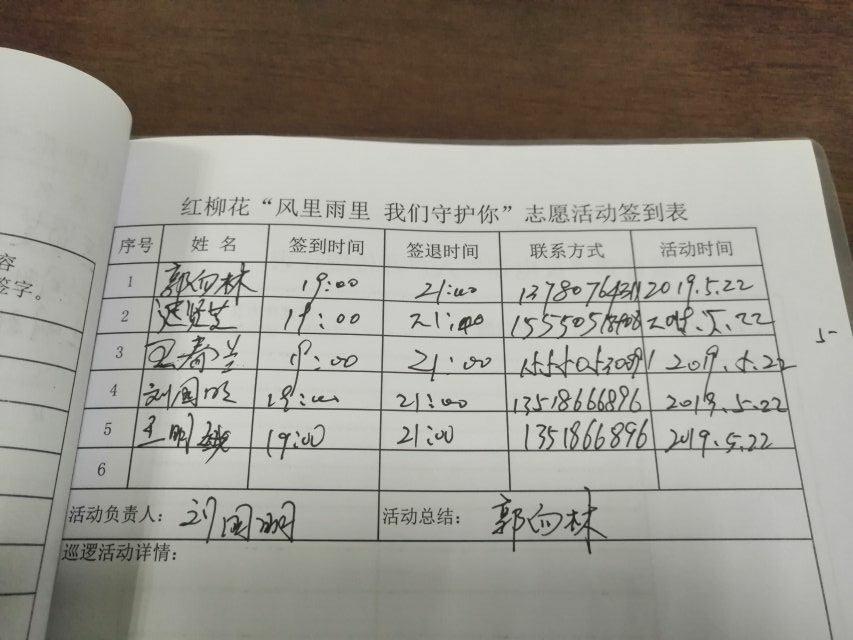 容
签字。
红柳花“风里雨里 我们守护你”志愿活动签到表
序号 姓 名 签到时间 签退时间 联系方式 活动时间
1 郭向林 19:00 21:00 2019.5.22
2 19:00 21:00 2019.5.22
3 王春兰 19:00 21:00 2019.5.22
4 刘国明 19:00 21:00 13518666896 2019.5.22
5 王明 19:00 21:00 1351866896 2019.5.22
6
活动负责人: 刘国明 活动总结: 郭向林
巡逻活动详情: